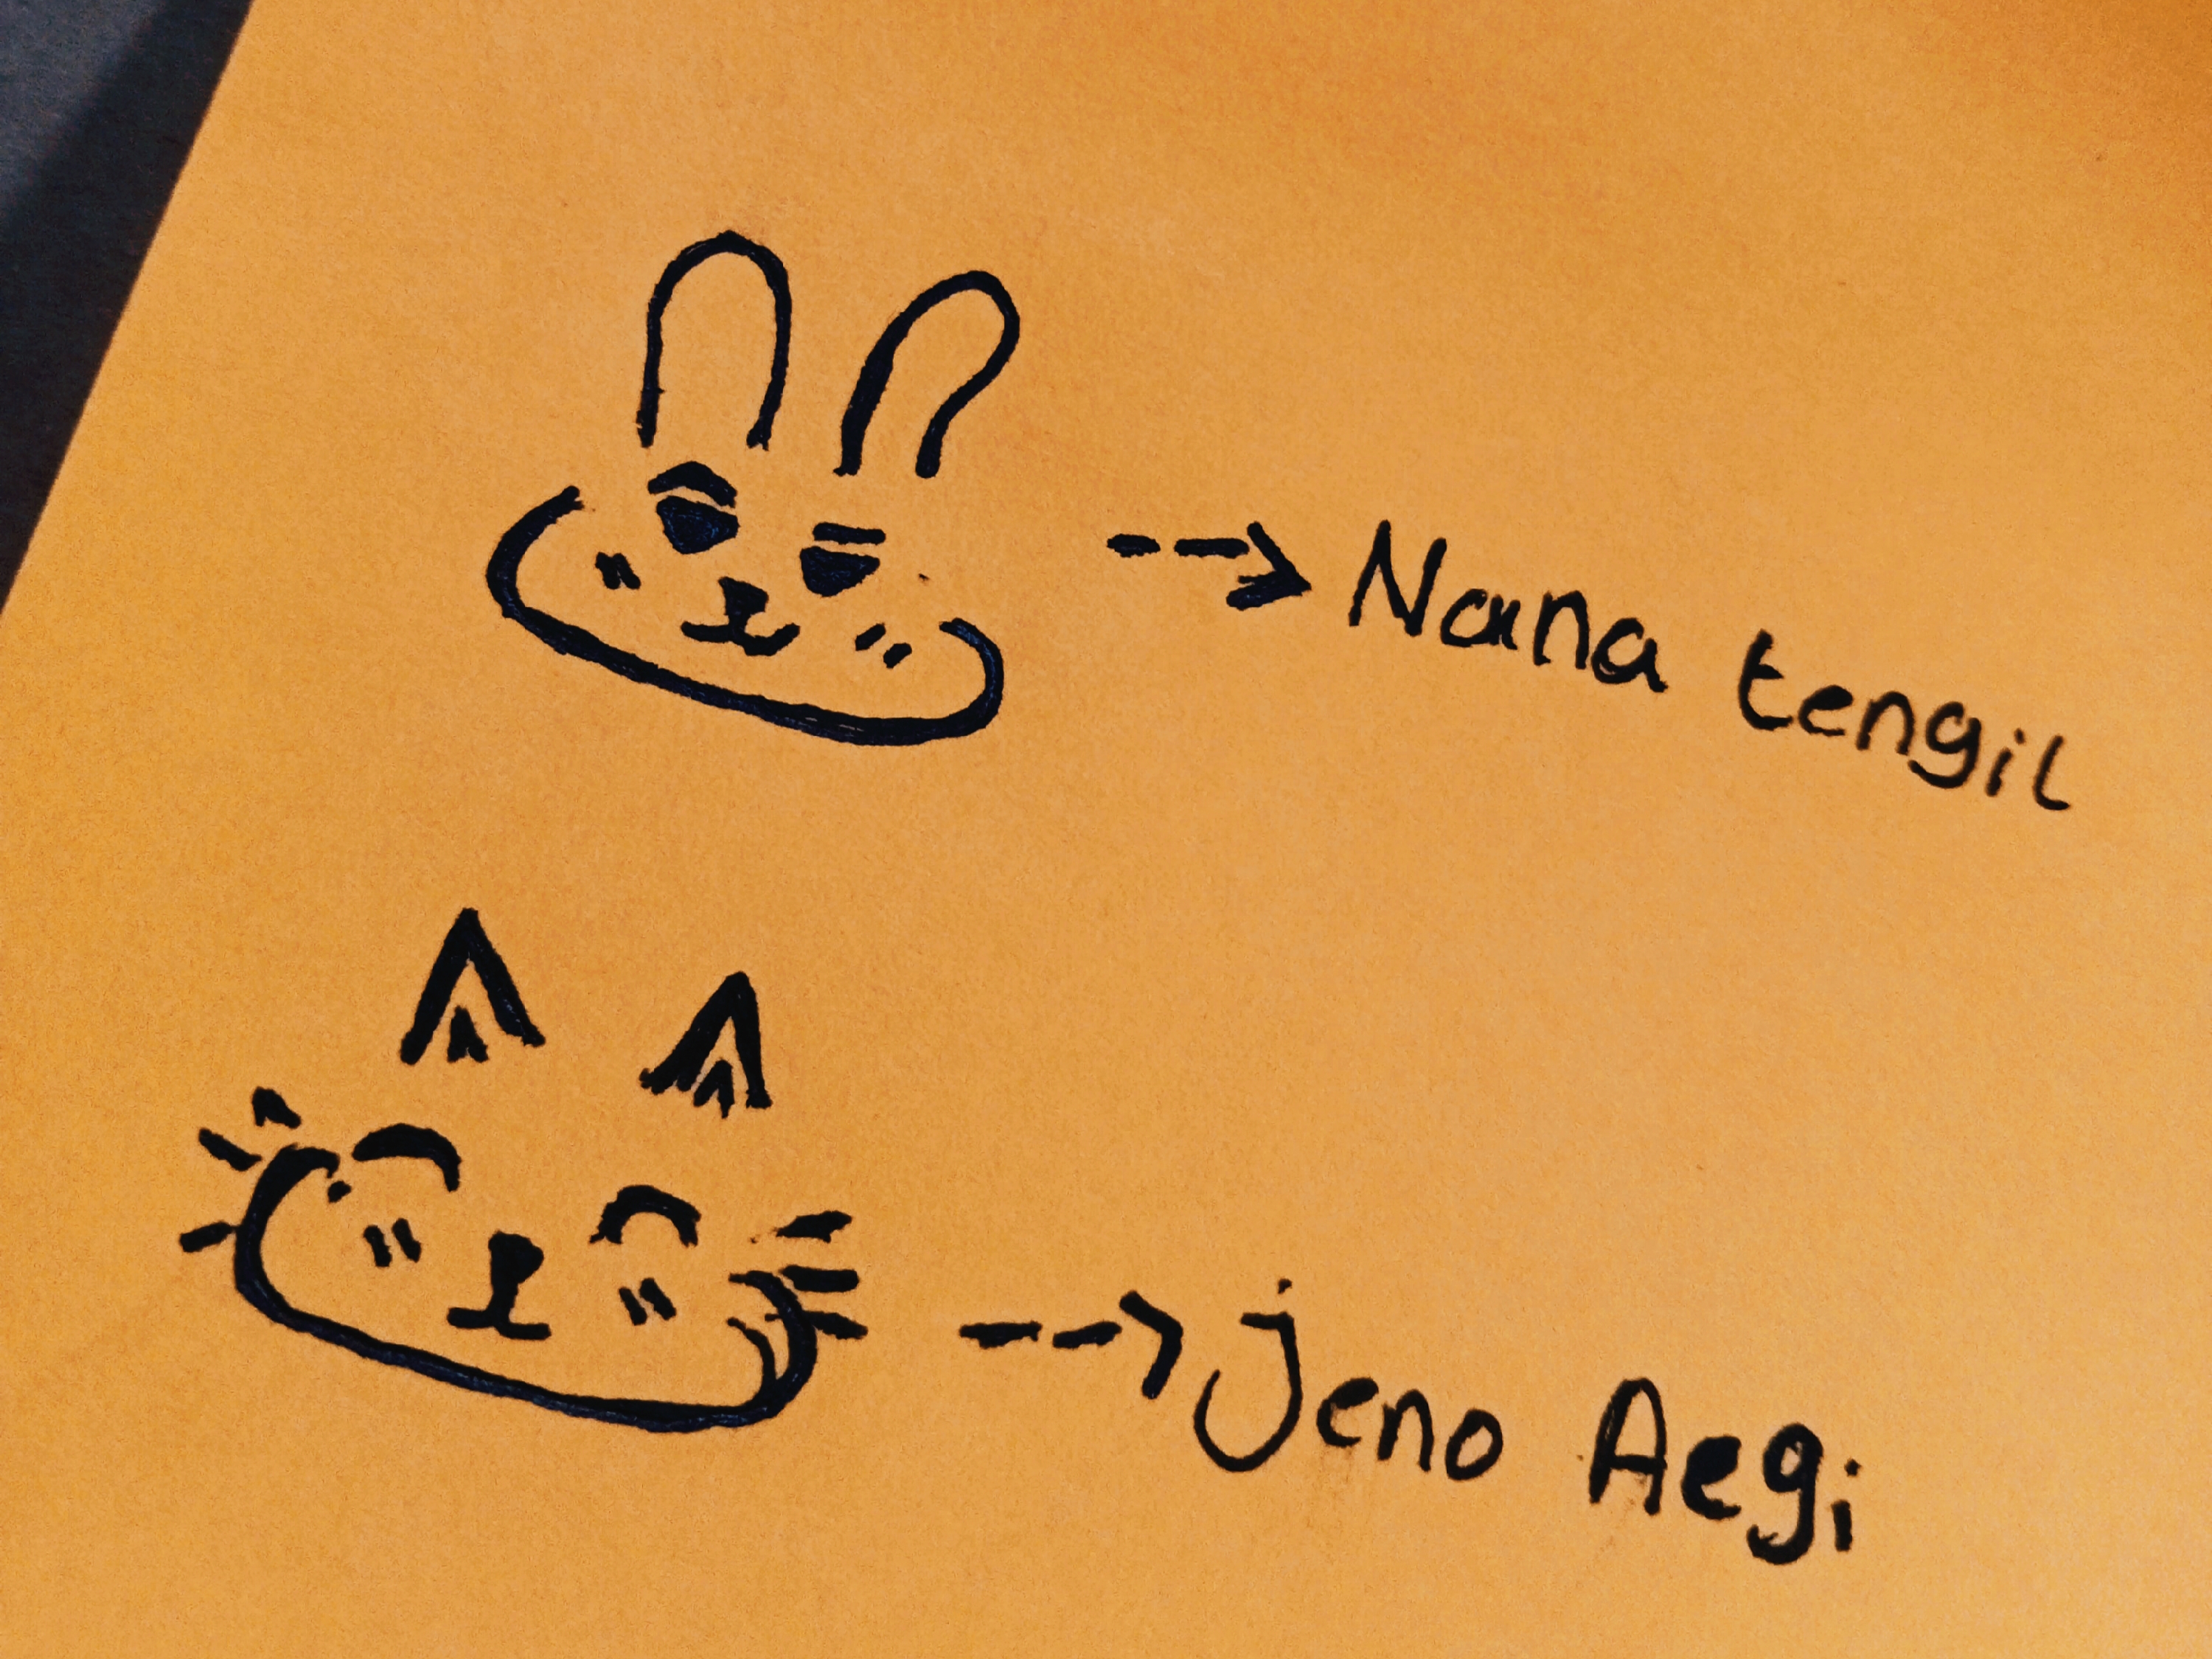 Nana tengil
jeno Aegi